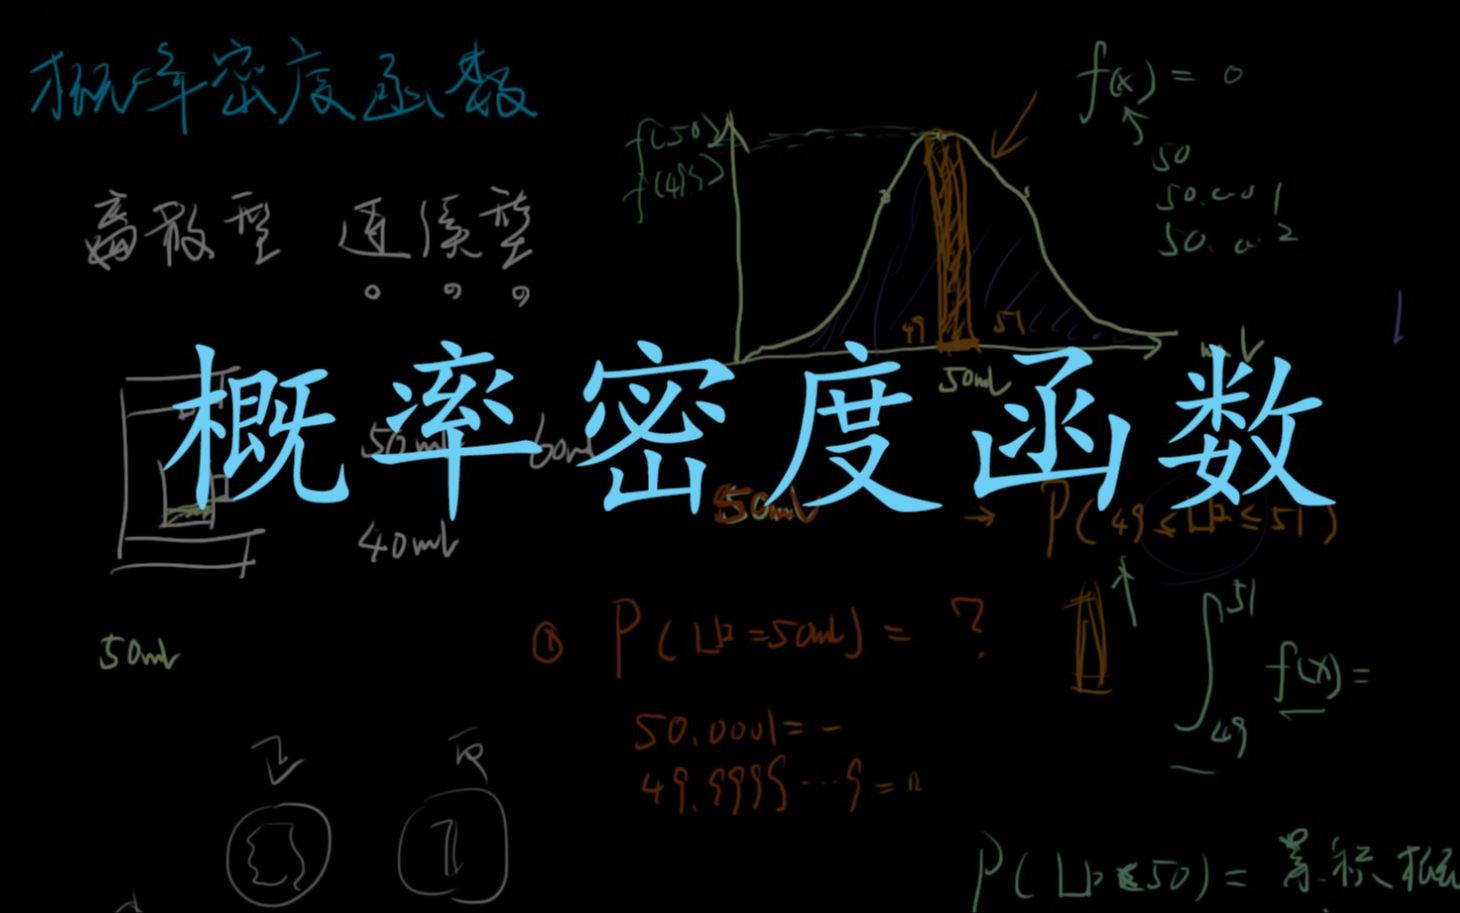 概率密度函数
f(50)
f(49)
f(x) = 0
50
50.001
50.002
离散型 连续型
49 51
50ml
概率密度函数
50ml 60ml
40ml
50ml
→ P(49≤山≤51)
50ml
① P(山=50ml) = ?
∫ 51 49 f(x) =
50.0001= -
49.9999...9 =
正 反
1
P(山≤50) = 累积概